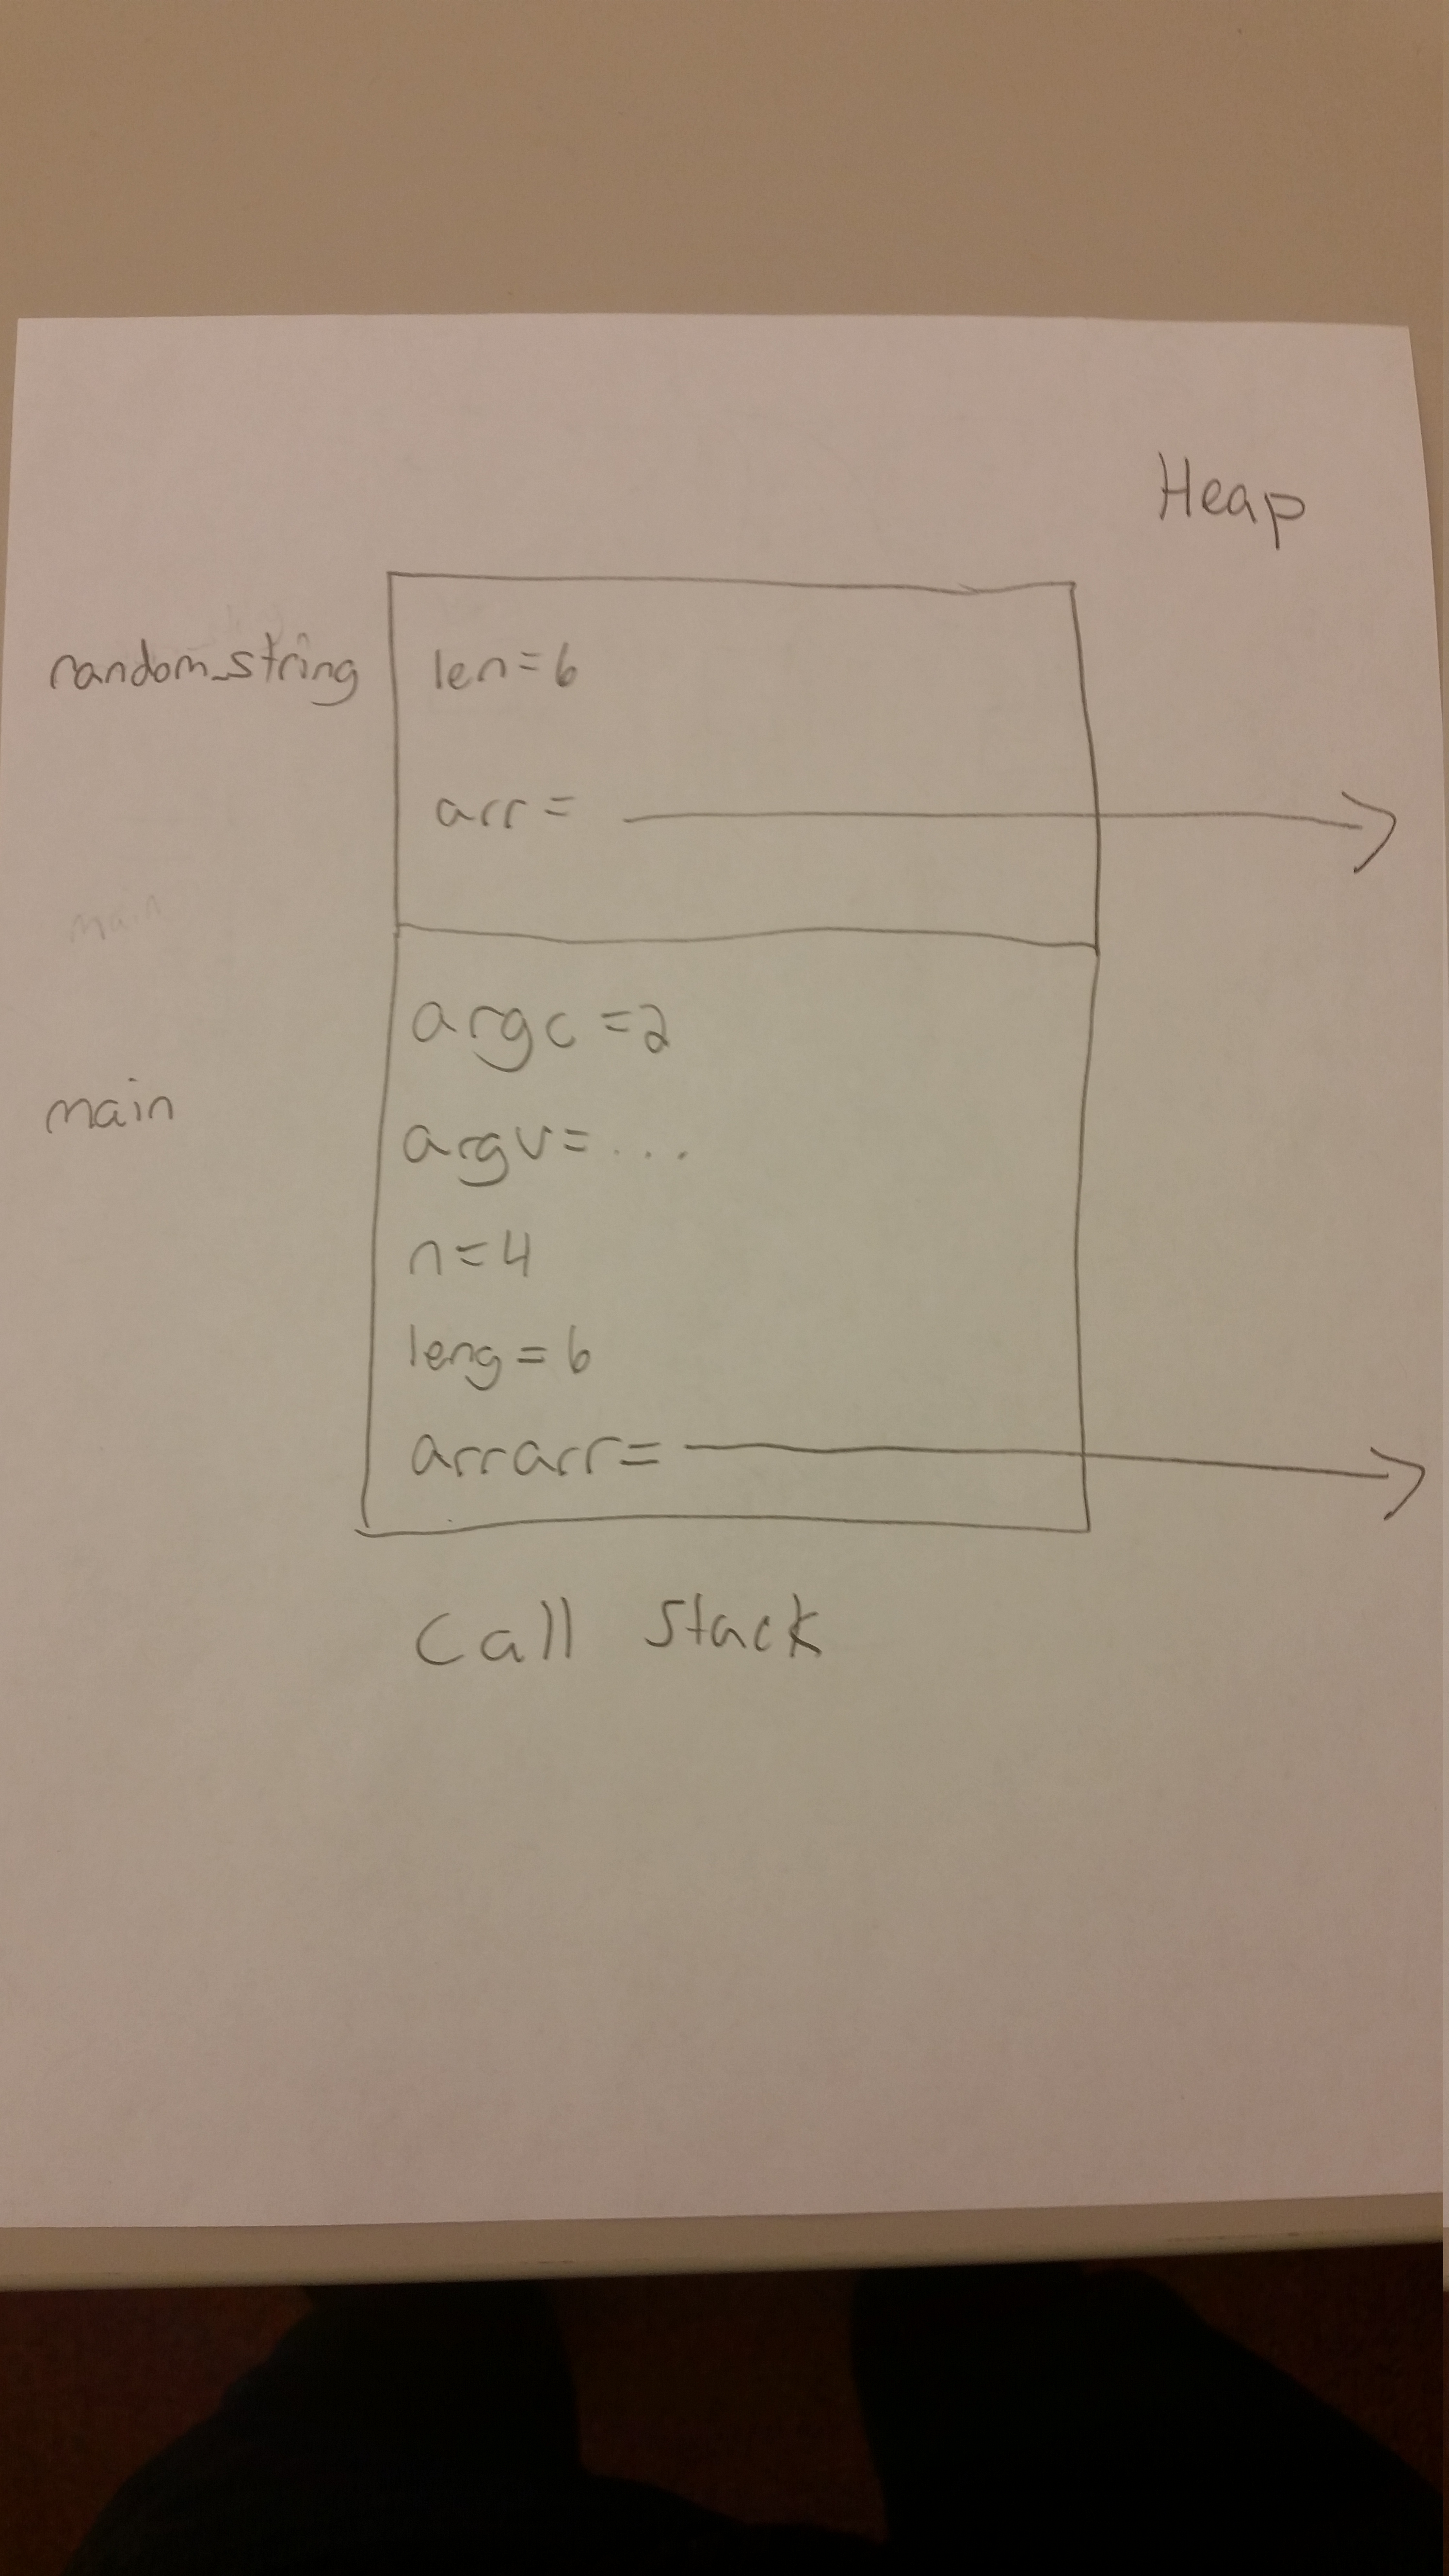 Heap
random_string
len=6
arr=
main
argc=2
argv=...
main
n=4
leng=6
arrarr=
Call Stack